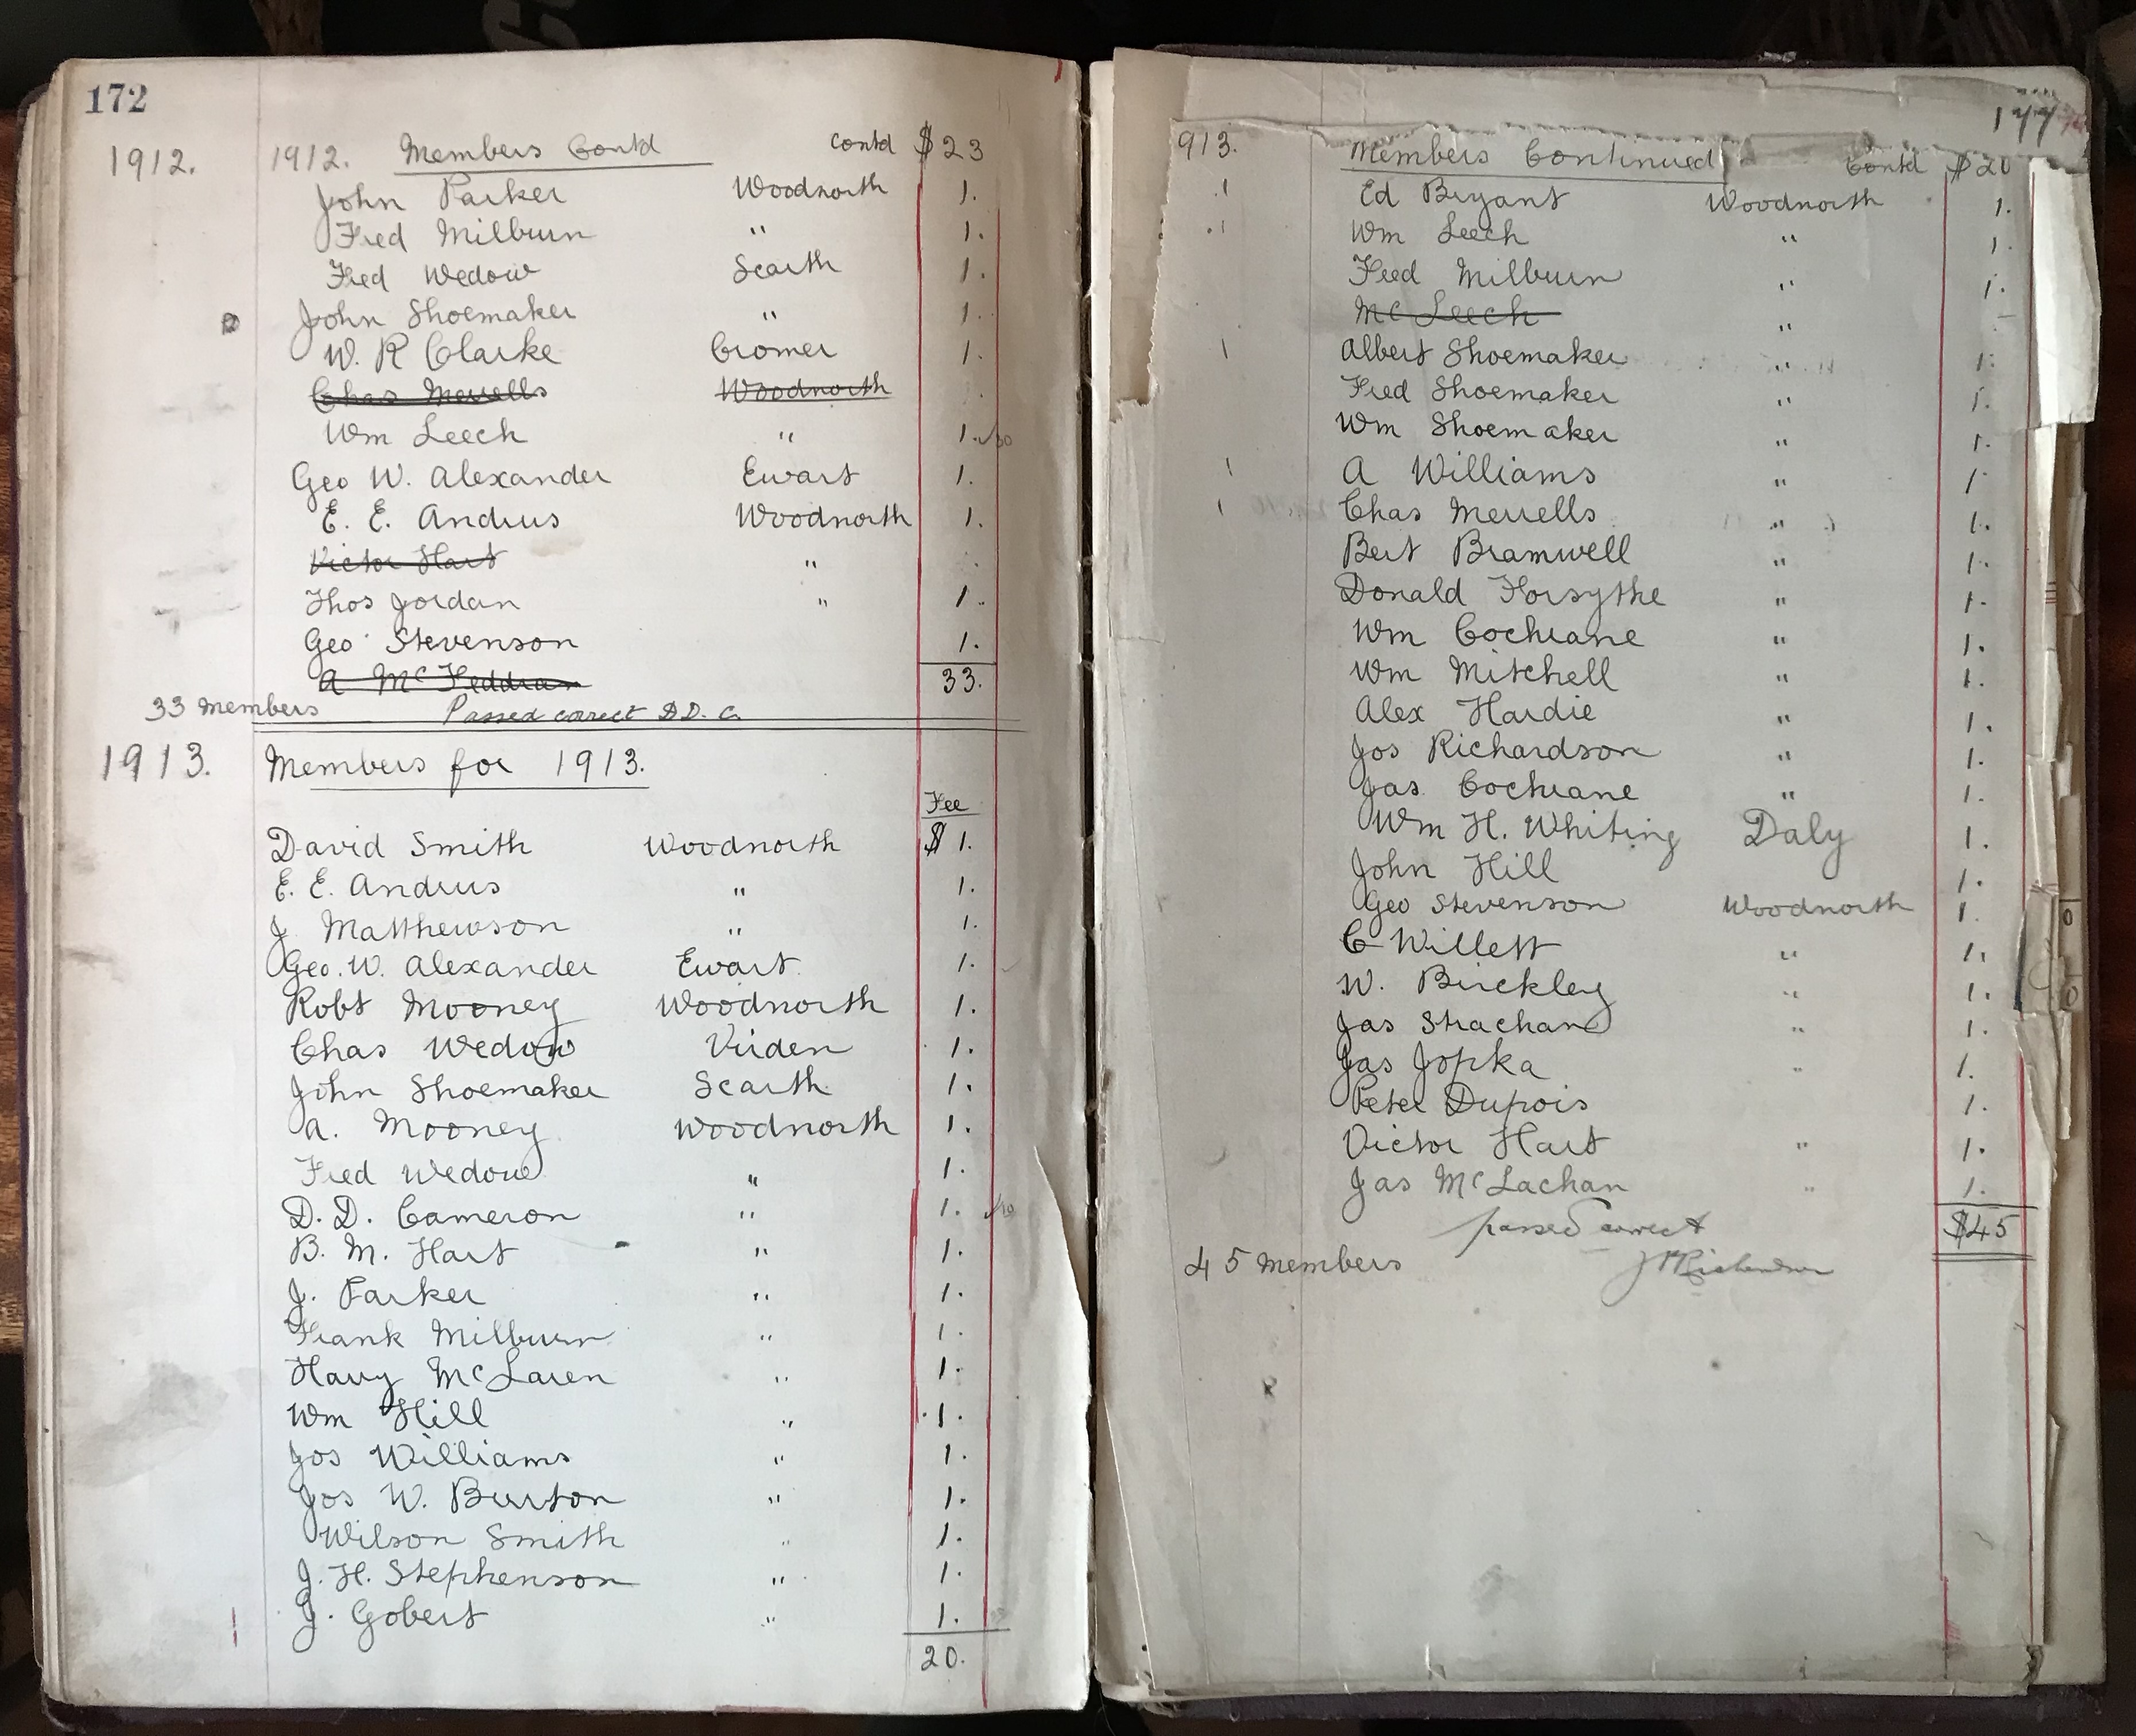 172
1912. 1912. Members Contd Contd $23
John Parker Woodnorth 1.
Fred Milburn " 1.
Fred Wedow Scarth 1.
John Shoemaker " 1.
W. R Clarke Cromer 1.
Chas Merrells Woodnorth
Wm Leech " 1.
Geo W. Alexander Ewart 1.
E. E. Andrus Woodnorth 1.
Victor Hart "
Thos Jordan " 1.
Geo Stevenson 1.
A McFeddran 33.
33 members Passed correct D. D. C.
1913. Members for 1913.
Fee
David Smith Woodnorth $1.
E. E. Andrus " 1.
J. Matthewson " 1.
Geo. W. Alexander Ewart. 1.
Robt Mooney Woodnorth 1.
Chas Wedow Virden 1.
John Shoemaker Scarth. 1.
A. Mooney Woodnorth 1.
Fred Wedow " 1.
D. D. Cameron " 1.
B. M. Hart " 1.
J. Parker " 1.
Frank Milburn " 1.
Harry McLaren " 1.
Wm Hill " 1.
Jos Williams " 1.
Jos W. Burton " 1.
Wilson Smith " 1.
J. H. Stephenson " 1.
J. Gobert " 1.
20.
177
913. Members Continued Contd $20
Ed Bryant Woodnorth 1.
Wm Leech " 1.
Fred Milburn " 1.
Mc Leech "
Albert Shoemaker " 1.
Fred Shoemaker " 1.
Wm Shoemaker " 1.
A Williams " 1.
Chas Merrells " 1.
Bert Bramwell " 1.
Donald Forsythe " 1.
Wm Cochrane " 1.
Wm Mitchell " 1.
Alex Hardie " 1.
Jos Richardson " 1.
Jas. Cochrane " 1.
Wm H. Whiting Daly 1.
John Hill 1.
Geo Stevenson Woodnorth 1.
C Willett " 1.
W. Birckley " 1.
Jas Strachan " 1.
Jas Jopka " 1.
Peter Dupois 1.
Victor Hart " 1.
Jas McLachan " 1.
passed correct $45
45 members J Richardson